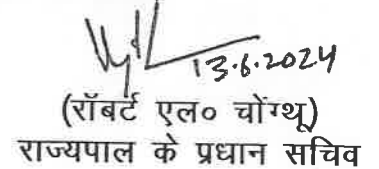 13.6.2024
(रॉबर्ट एल० चोंग्थू)
राज्यपाल के प्रधान सचिव